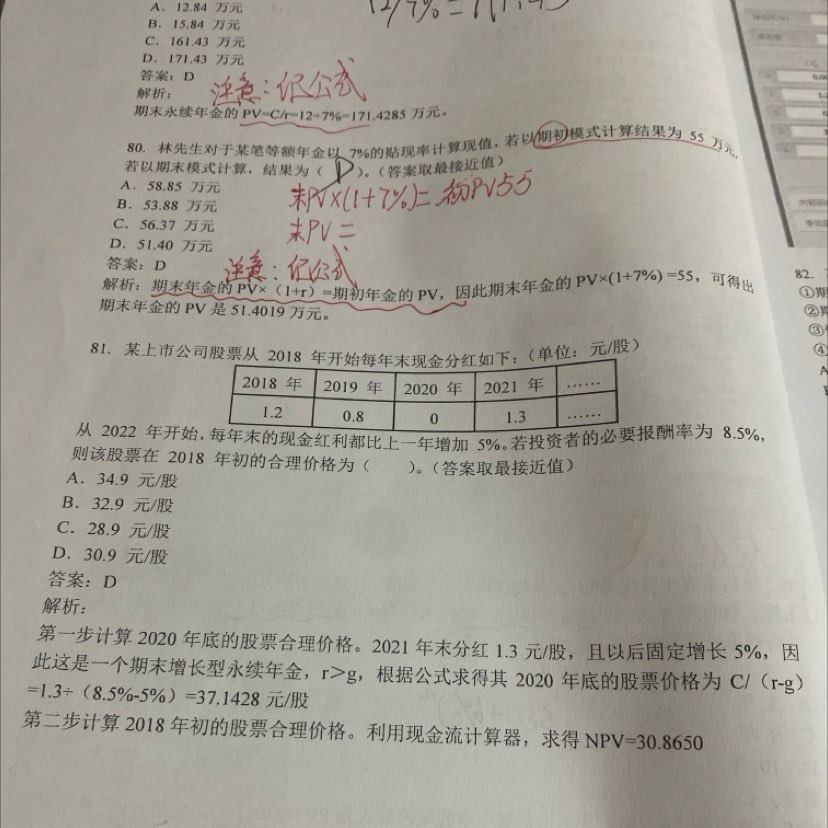 A. 12.84 万元
B. 15.84 万元
C. 161.43 万元
D. 171.43 万元
答案：D
解析：
注意：记公式
期末永续年金的 PV=C/r=12÷7%=171.4285 万元。
80. 林先生对于某笔等额年金以 7%的贴现率计算现值，若以期初模式计算结果为 55 万元，
若以期末模式计算，结果为（ D ）。（答案取最接近值）
A. 58.85 万元
B. 53.88 万元
C. 56.37 万元
D. 51.40 万元
末PV×(1+7%)=初PV55
末PV=
答案：D
注意：记公式
解析：期末年金的 PV×（1+r）=期初年金的 PV，因此期末年金的 PV×(1+7%) =55，可得出
期末年金的 PV 是 51.4019 万元。
81. 某上市公司股票从 2018 年开始每年末现金分红如下：（单位：元/股）
2018 年 2019 年 2020 年 2021 年 ……
1.2 0.8 0 1.3 ……
从 2022 年开始，每年末的现金红利都比上一年增加 5%。若投资者的必要报酬率为 8.5%，
则该股票在 2018 年初的合理价格为（ ）。（答案取最接近值）
A. 34.9 元/股
B. 32.9 元/股
C. 28.9 元/股
D. 30.9 元/股
答案：D
解析：
第一步计算 2020 年底的股票合理价格。2021 年末分红 1.3 元/股，且以后固定增长 5%，因
此这是一个期末增长型永续年金，r＞g，根据公式求得其 2020 年底的股票价格为 C/（r-g）
=1.3÷（8.5%-5%）=37.1428 元/股
第二步计算 2018 年初的股票合理价格。利用现金流计算器，求得 NPV=30.8650
82.
①期
②期
③
④
A